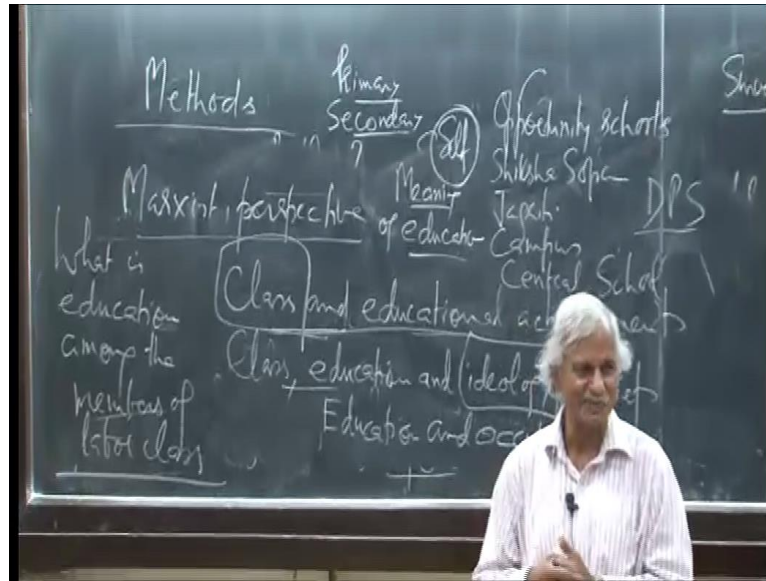 Methods
Primary
Secondary
Self
Opportunity schools
Shiksha Sopan
Jagriti
Campus
Central School
DPS
Marxist perspective
Meaning
of education
What is
education
among the
members of
labor class
Class and educational
Class, education and ideology
Education and